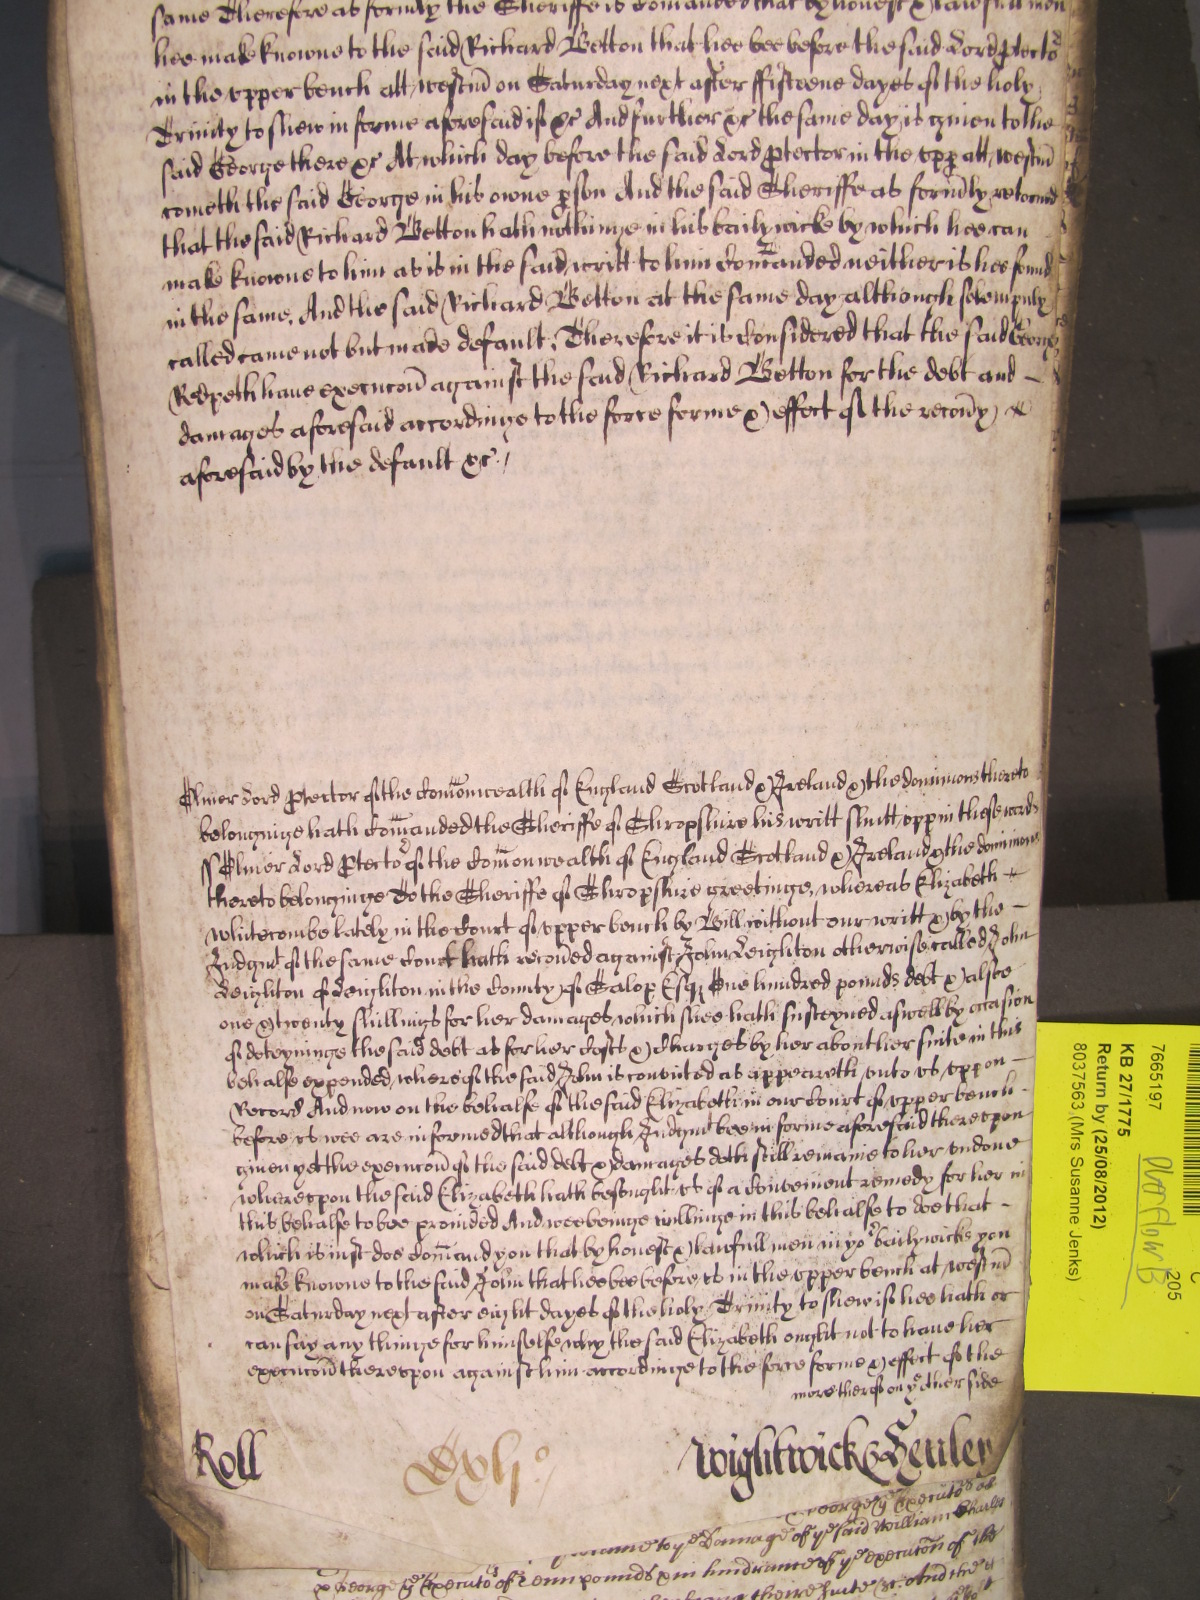 same Therefore as formly the Sheriffe is Comanded that by honest & lawfull men
hee make knowne to the said Richard Betton that hee bee before the said Lord Ptector
in the vpper bench att westm̄ on Saturday next after ffifteene dayes of the holy
Trinity to shew in forme aforesaid if &c And further &c the same day is giuen to the
said George there &c At which day before the said Lord Ptector in the vpp att westm̄
cometh the said George in his owne pson And the said Sheriffe as formly retorned
that the said Richard Betton hath nothinge in his bailywicke by which hee can
make knowne to him as is in the said writt to him Comanded neither is hee found
in the same. And the said Richard Betton at the same day although solempnly
called came not but made default. Therefore it is Considered that the said George
Redpeth haue execucon̄ against the said Richard Betton for the debt and
damages aforesaid accordinge to the force forme & effect of the recoūy
aforesaid by the default &c.
Oliuer Lord Ptector of the Comonwealth of England Scotland & Ireland & the dominions thereto
belonginge hath Comanded the Sheriffe of Shropshire his writt shutt vpp in these words
ss Oliuer Lord Ptector of the Comonwealth of England Scotland & Ireland & the dominions
thereto belonginge To the Sheriffe of Shropshire greetinge, whereas Elizabeth
Whitecombe lately in the Court of vpper bench by Bill without our writt & by the
Iudgmt of the same Court hath recoued against John Leighton otherwise called John
Leighton of Leighton in the County of Salop Esq One hundred pounds debt & alsoe
one & twenty shillings for her damages which shee hath susteyned aswell by occasion
of deteyninge the said debt as for her Costs & Charges by her about her suite in this
behalfe expended, whereof the said John is convicted as appeareth vnto vs vppon
Record And now on the behalfe of the said Elizabeth in our Court of vpper bench
before vs wee are informed that although Iudgmt bee in forme aforesaid therevpon
giuen yet the execucon̄ of the said debt & damages doth still remaine to her vndone
wherevpon the said Elizabeth hath besought vs of a Convenient remedy for her in
this behalfe to bee prouided And wee beinge willinge in this behalfe to doe that
which is iust doe Comand you that by honest & lawfull men in yor bailywicke you
make knowne to the said John that hee bee before vs in the vpper bench at westm̄
on Saturday next after eight dayes of the holy Trinity to shew if hee hath or
can say any thinge for himselfe why the said Elizabeth ought not to haue her
execucon̄ therevpon against him accordinge to the force forme & effect of the
more thereof on ye other side
Roll Wightwick & Henley
George ye Executor of
to ye Damage of ye said William
& George ye Executor of Tenn pounds & in hindrance of ye execucon̄ of the
theire suite &c. And the
7665197
KB 27/1775
Return by (25/08/2012)
8037563 (Mrs Susanne Jenks)
205
C